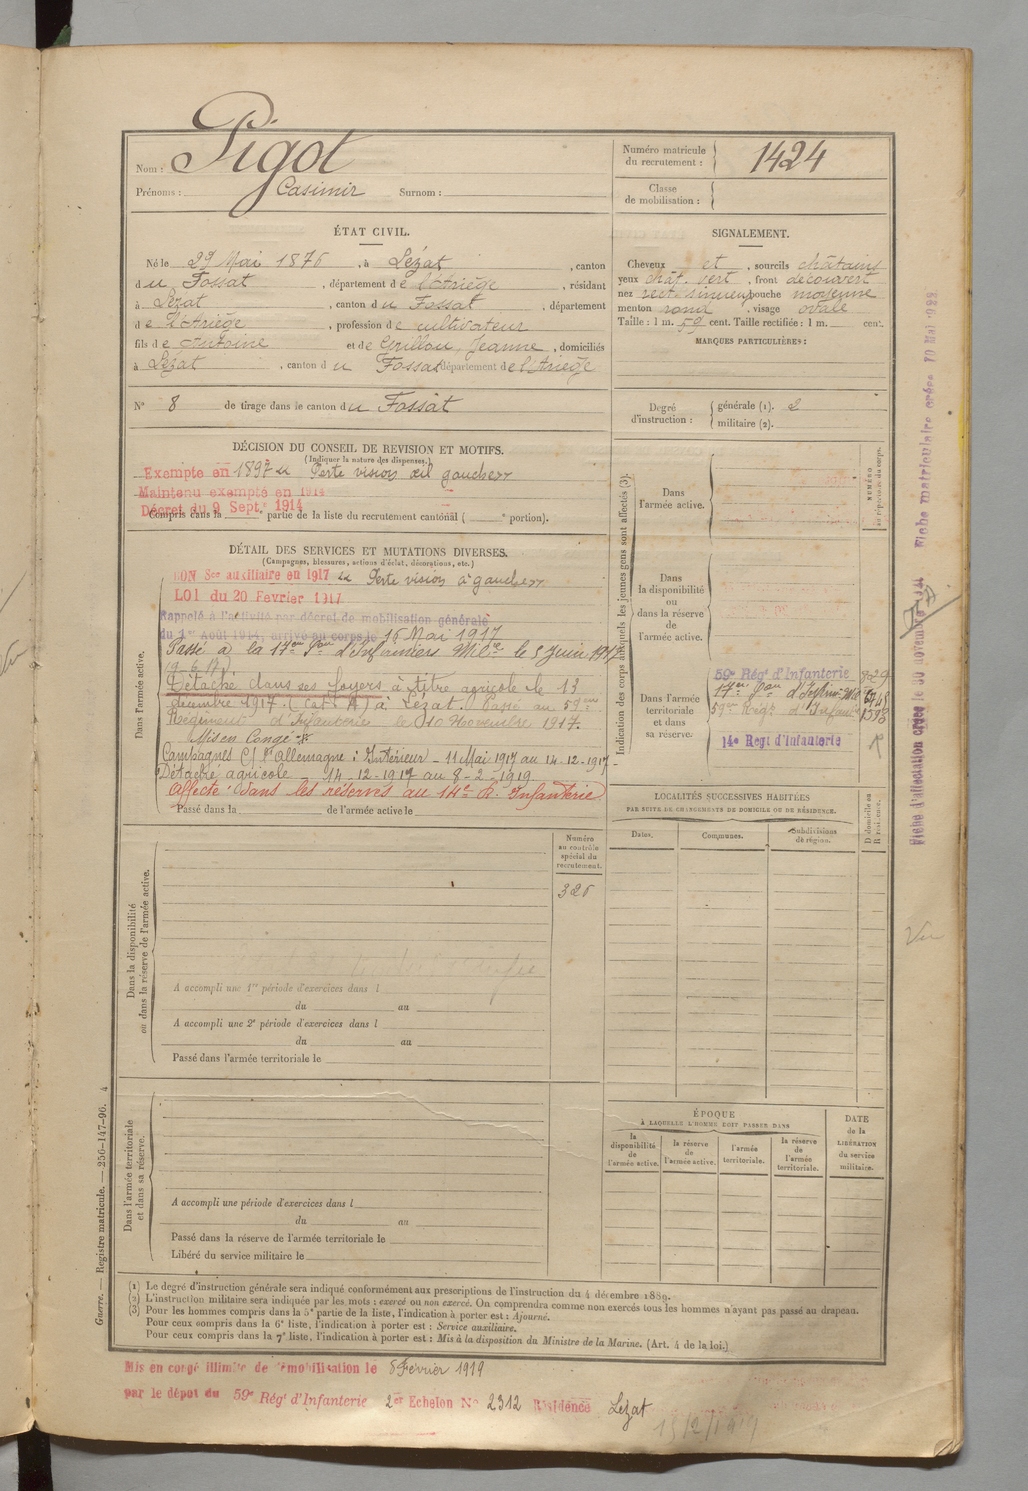 Nom : Pigot
Prénoms : Casimir Surnom :
Numéro matricule
du recrutement : 1424
Classe
de mobilisation :
ÉTAT CIVIL.
Né le 29 Mai 1876, à Lézat, canton
du Fossat, département de l'Ariège, résidant
à Lézat, canton du Fossat, département
de l'Ariège, profession de cultivateur
fils de Antoine et de Grillou Jeanne, domiciliés
à Lézat, canton du Fossat département de l'Ariège
N° 8 de tirage dans le canton du Fossat
SIGNALEMENT.
Cheveux et, sourcils châtains
yeux chât. vert, front découvert
nez rect. sinueux bouche moyenne
menton rond, visage ovale
Taille : 1 m. 59 cent. Taille rectifiée : 1 m. cent.
MARQUES PARTICULIÈRES :
Degré
d'instruction :
générale (1). 2
militaire (2).
DÉCISION DU CONSEIL DE REVISION ET MOTIFS.
(Indiquer la nature des dispenses.)
Exempté en 1897 Perte vision œil gauche
Maintenu exempté en 1914
Décret du 9 Sept. 1914
Compris dans la partie de la liste du recrutement cantonal ( e portion).
DÉTAIL DES SERVICES ET MUTATIONS DIVERSES.
(Campagnes, blessures, actions d'éclat, décorations, etc.)
Dans l'armée active.
BON Sce auxiliaire en 1917 Perte vision à gauche
LOI du 20 Février 1917
Rappelé à l'activité par décret de mobilisation générale
du 1er Août 1914, arrivé au corps le 16 Mai 1917
Passé à la 17eme Son d'Infirmiers Mil.re le 8 Juin 1917
(9-6-17)
Détaché dans ses foyers à titre agricole le 13
décembre 1917. (Cat. A) à Lézat. Passé au 59eme
Régiment d'Infanterie le 10 Novembre 1917.
Mis en Congé
Campagnes C/ l'Allemagne : Intérieur - 11 Mai 1917 au 14-12-1917 -
Détaché agricole - 14-12-1917 au 8-2-1919
affecté dans les réserves au 14e R. Infanterie
Passé dans la de l'armée active le
Indication des corps auxquels les jeunes gens sont affectés (3).
NUMÉRO
au répertoire du corps.
Dans
l'armée active.
Dans
la disponibilité
ou
dans la réserve
de
l'armée active.
Dans l'armée
territoriale
et dans
sa réserve.
59e Régt d'Infanterie
17en Son d'Infirm. Mil.
59em Régt d'Infanie 1598
14e Regt d'Infanterie
LOCALITÉS SUCCESSIVES HABITÉES
PAR SUITE DE CHANGEMENTS DE DOMICILE OU DE RÉSIDENCE.
Dates.
Communes.
Subdivisions
de région.
D domicile ou
R résidence.
Numéro
au contrôle
spécial du
recrutement.
326
Dans la disponibilité
ou dans la réserve de l'armée active.
A accompli une 1re période d'exercices dans l
du au
A accompli une 2e période d'exercices dans l
du au
Passé dans l'armée territoriale le
ÉPOQUE
À LAQUELLE L'HOMME DOIT PASSER DANS
la
disponibilité
de
l'armée active.
la réserve
de
l'armée active.
l'armée
territoriale.
la réserve
de
l'armée
territoriale.
DATE
de la
LIBÉRATION
du service
militaire.
Dans l'armée territoriale
et dans sa réserve.
A accompli une période d'exercices dans l
du au
Passé dans la réserve de l'armée territoriale le
Libéré du service militaire le
(1) Le degré d'instruction générale sera indiqué conformément aux prescriptions de l'instruction du 4 décembre 1889.
(2) L'instruction militaire sera indiquée par les mots : exercé ou non exercé. On comprendra comme non exercés tous les hommes n'ayant pas passé au drapeau.
(3) Pour les hommes compris dans la 5e partie de la liste, l'indication à porter est : Ajourné.
Pour ceux compris dans la 6e liste, l'indication à porter est : Service auxiliaire.
Pour ceux compris dans la 7e liste, l'indication à porter est : Mis à la disposition du Ministre de la Marine. (Art. 4 de la loi.)
Guerre. — Registre matricule. — 256-147-96. 4
Mis en congé illimité de démobilisation le 8 Février 1919
par le dépôt du 59e Régt d'Infanterie 2er Echelon No 2312 Résidence Lezat
15/2/1919
Fiche matriculaire créée 10 Mai
Fiche d'affectation créée 30 novembre
Vu